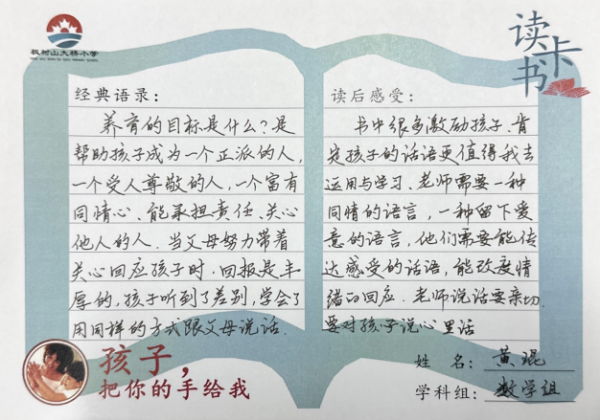 枫树山大桥小学
读书卡
经典语录：
养育的目标是什么？是
帮助孩子成为一个正派的人，
一个受人尊敬的人，一个富有
同情心、能承担责任、关心
他人的人。当父母努力带着
关心回应孩子时，回报是丰
厚的，孩子听到了差别，学会了
用同样的方式跟父母说话。
读后感受：
书中很多激励孩子、肯
定孩子的话语更值得我去
运用与学习。老师需要一种
同情的语言，一种留下爱
意的语言，他们需要能传
达感受的话语，能改变情
绪的回应。老师说话要亲切
要对孩子说心里话
孩子，
把你的手给我
姓 名：黄琨
学科组：数学组